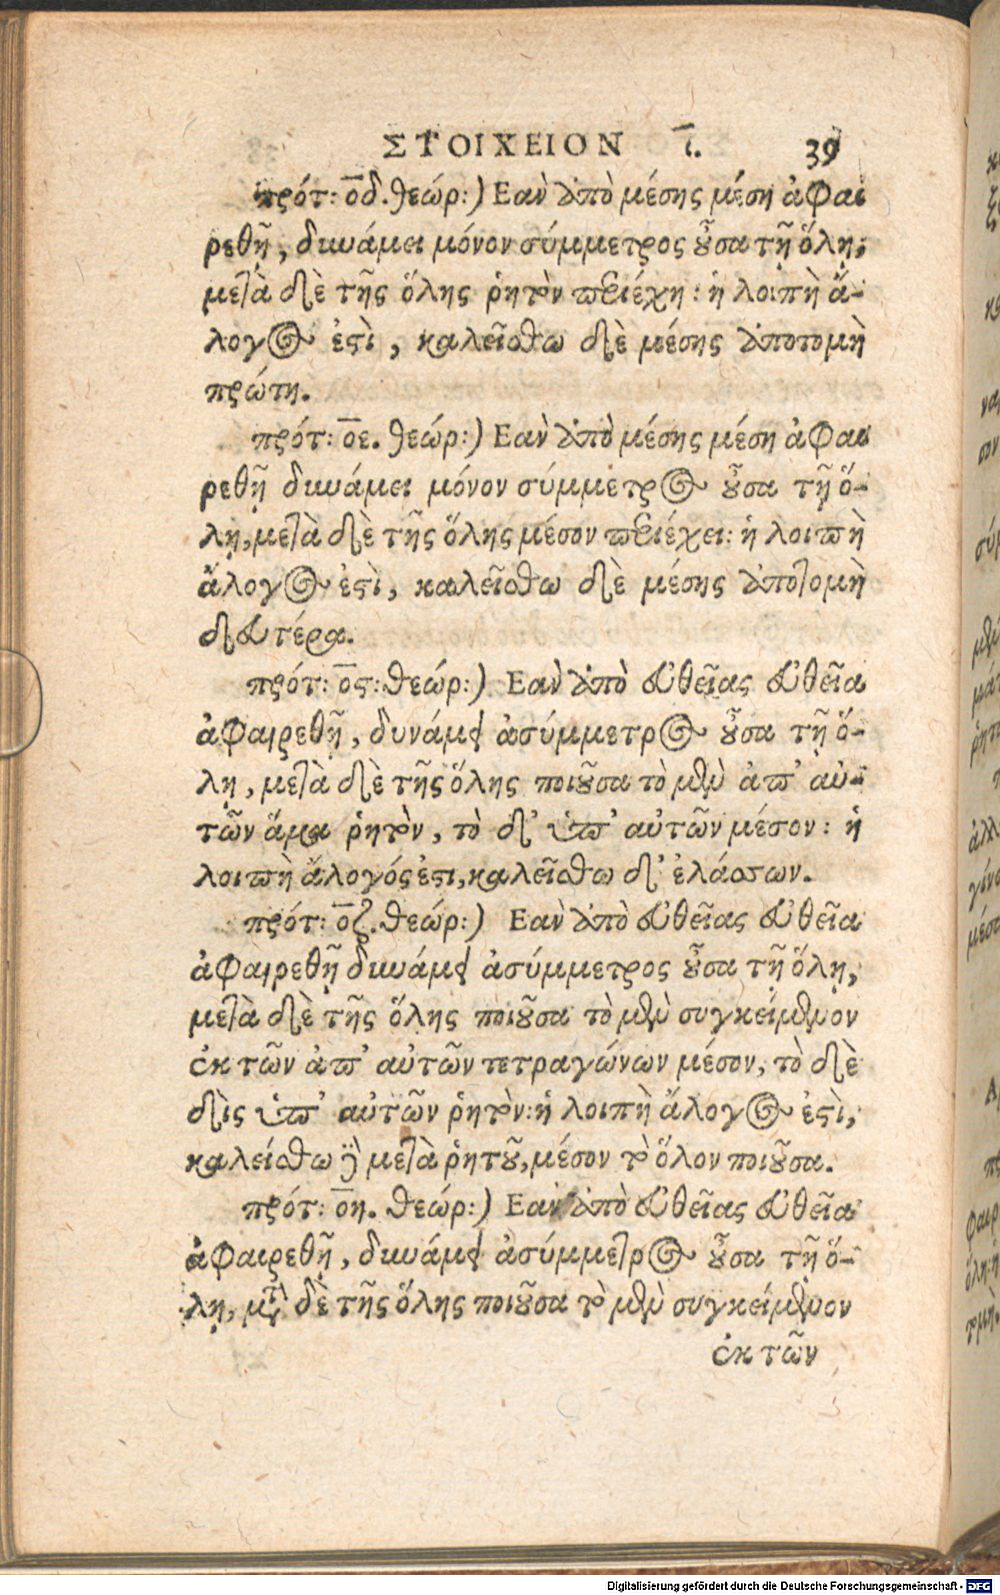 ΣΤΟΙΧΕΙΟΝ ῑ. 39
πρότ: ο̅δ. θεώρ:) Εαὰν ἀπὸ μέσης μέση ἀφαι
ρεθῇ, δυνάμει μόνον σύμμετρος οὖσα τῇ ὅλῃ,
μετὰ δὲ τῆς ὅλης ῥητὸν περιέχη: ἡ λοιπὴ ἄ-
λογος ἐστὶ, καλεῖσθω δὲ μέσης ἀποτομὴ
πρώτη.
πρότ: ο̅ε. θεώρ:) Εαὰν ἀπὸ μέσης μέση ἀφαι
ρεθῇ δυνάμει μόνον σύμμετρος οὖσα τῇ ὅ-
λῃ, μετὰ δὲ τῆς ὅλης μέσον περιέχει: ἡ λοιπὴ
ἄλογος ἐστὶ, καλεῖσθω δὲ μέσης ἀποτομὴ
δευτέρα.
πρότ: ο̅ς: θεώρ:) Εαὰν ἀπὸ εὐθεῖας εὐθεῖα
ἀφαιρεθῇ, δυνάμει ἀσύμμετρος οὖσα τῇ ὅ-
λῃ, μετὰ δὲ τῆς ὅλης ποιοῦσα τὸ μὲν ἀπ' αὐ-
τῶν ἅμα ῥητὸν, τὸ δ' ὑπ' αὐτῶν μέσον: ἡ
λοιπὴ ἄλογός ἐστι, καλεῖσθω δ' ἐλάσσων.
πρότ: ο̅ζ. θεώρ:) Εαὰν ἀπὸ εὐθεῖας εὐθεῖα
ἀφαιρεθῇ δυνάμει ἀσύμμετρος οὖσα τῇ ὅλῃ,
μετὰ δὲ τῆς ὅλης ποιοῦσα τὸ μὲν συγκείμενον
ἐκ τῶν ἀπ' αὐτῶν τετραγώνων μέσον, τὸ δὲ
δὶς ὑπ' αὐτῶν ῥητὸν: ἡ λοιπὴ ἄλογος ἐστὶ,
καλείσθω ἡ μετὰ ῥητοῦ, μέσον τὸ ὅλον ποιοῦσα.
πρότ: ο̅η. θεώρ:) Εαὰν ἀπὸ εὐθεῖας εὐθεῖα
ἀφαιρεθῇ, δυνάμει ἀσύμμετρος οὖσα τῇ ὅ-
λῃ, μετὰ δὲ τῆς ὅλης ποιοῦσα τὸ μὲν συγκείμενον
ἐκ τῶν
Digitalisierung gefördert durch die Deutsche Forschungsgemeinschaft - DFG